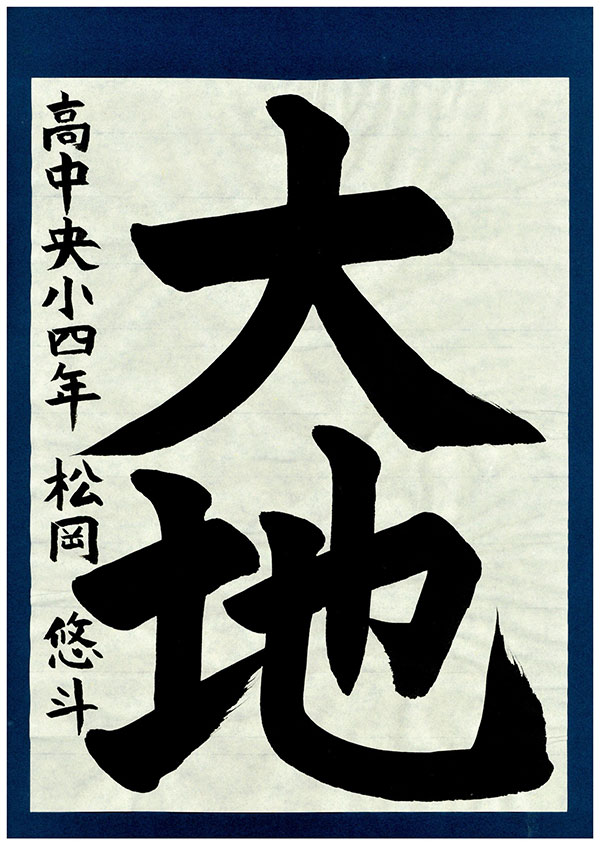 大地
高中央小四年 松岡 悠斗